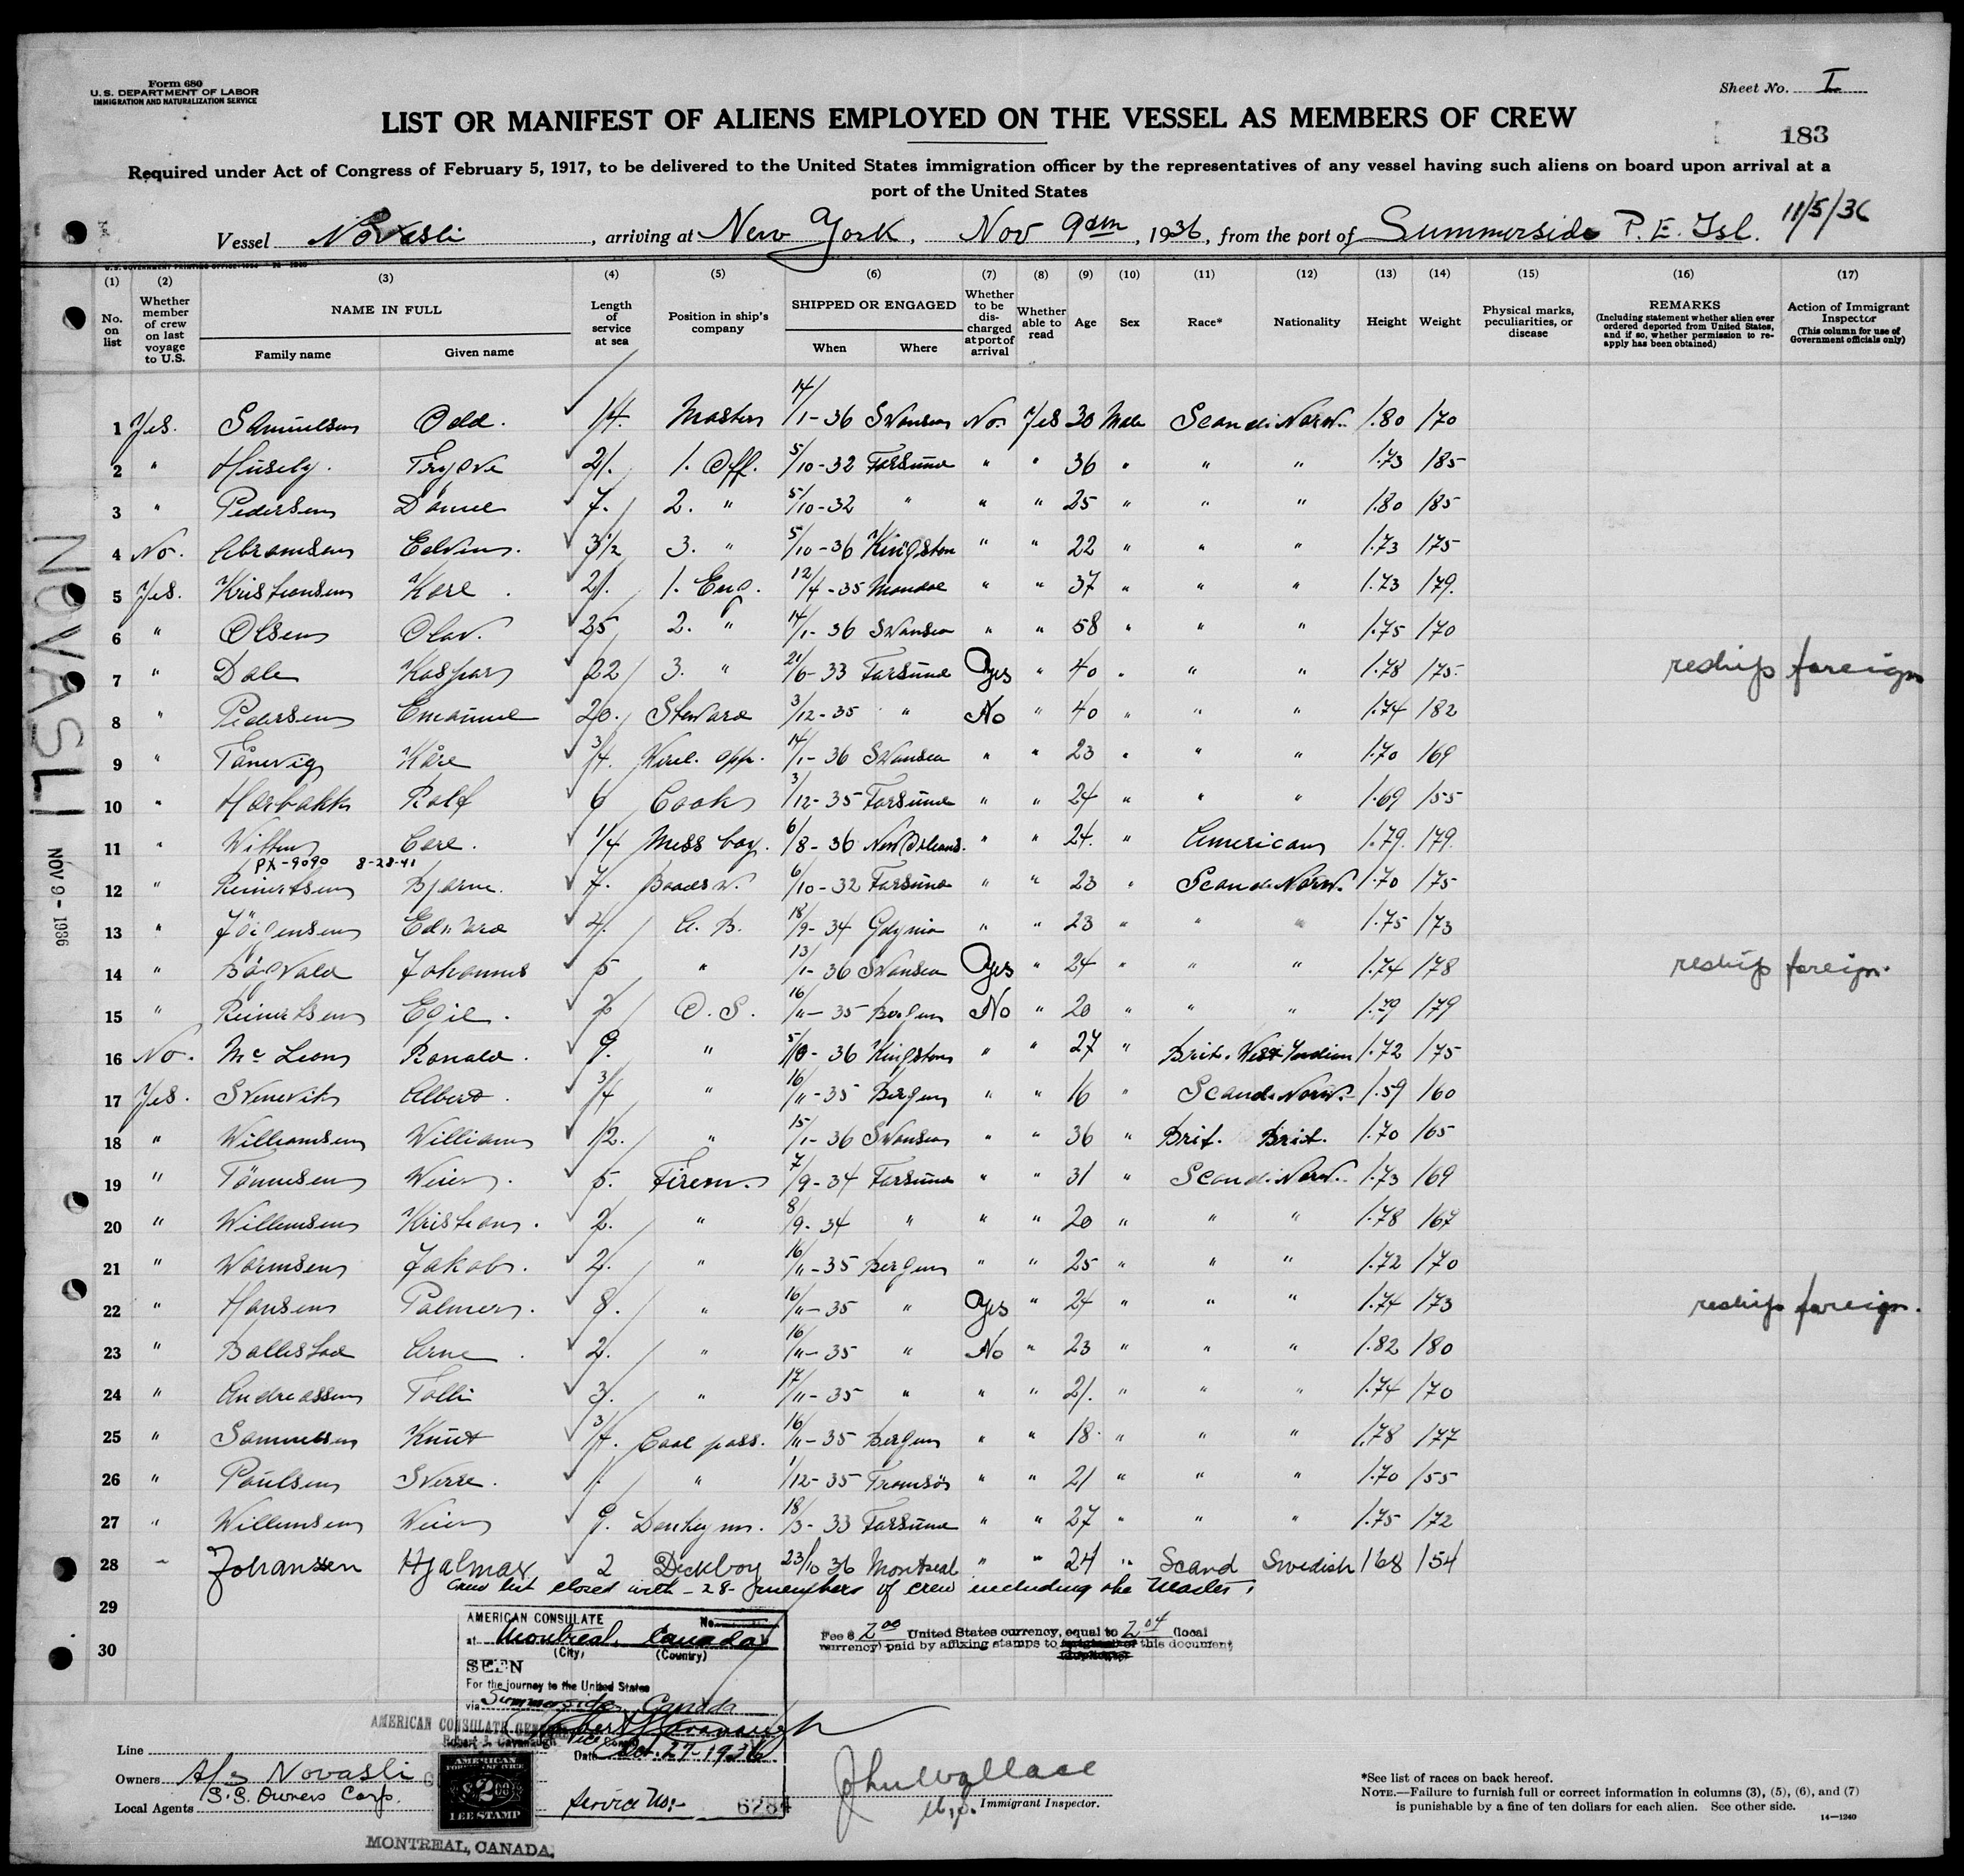 Form 680
U. S. DEPARTMENT OF LABOR
IMMIGRATION AND NATURALIZATION SERVICE
Sheet No. I
LIST OR MANIFEST OF ALIENS EMPLOYED ON THE VESSEL AS MEMBERS OF CREW
183
Required under Act of Congress of February 5, 1917, to be delivered to the United States immigration officer by the representatives of any vessel having such aliens on board upon arrival at a
port of the United States
11/5/36
Vessel Novasli, arriving at New York, Nov 9, 1936, from the port of Summerside P. E. Isl.
(1) (2) (3) (4) (5) (6) (7) (8) (9) (10) (11) (12) (13) (14) (15) (16) (17)
No. on list
Whether member of crew on last voyage to U.S.
NAME IN FULL
Family name Given name
Length of service at sea
Position in ship's company
SHIPPED OR ENGAGED
When Where
Whether to be discharged at port of arrival
Whether able to read
Age
Sex
Race*
Nationality
Height
Weight
Physical marks, peculiarities, or disease
REMARKS
(Including statement whether alien ever ordered deported from United States, and if so, whether permission to re-apply has been obtained)
Action of Immigrant Inspector
(This column for use of Government officials only)
1 Yes. Samuelsen Odd. 14. Master 14/1-36 Swansea No. Yes 30 Male Scandi. Norw. 1.80 170
2 " Trygve 21. 1. Off. 5/10-32 Farsund " " 36 " " " 1.73 185
3 " Pedersen Daniel 7. 2. " 5/10-32 " " " 25 " " " 1.80 185
4 No. Abramsen Edvin. 3 1/2 3. " 5/10-36 Kingston " " 22 " " " 1.73 175
5 Yes. Kristiansen Kåre. 21. 1. Eng. 12/4-35 Mandal " " 37 " " " 1.73 179.
6 " Olsen Olav. 25 2. " 14/1-36 Swansea " " 58 " " " 1.75 170
7 " Dale Kaspar 22 3. " 21/6-33 Farsund Yes " 40 " " " 1.78 175. reship foreign
8 " Pedersen Emanuel 20. Steward 3/12-35 " No " 40 " " " 1.74 182
9 " Tånevig Kåre 3/4. Wirel. opr. 14/1-36 Swansea " " 23 " " " 1.70 169
10 " Harbakk Rolf 6 Cook 3/12-35 Farsund " " 24 " " " 1.69 155
11 " 1/4 Mess boy. 6/8-36 New Orleans. " " 24. " American 1.79. 179.
PX-9090 8-28-41
12 " Reinertsen Bjarne. 7. 6/10-32 Farsund " " 23 " Scandi. Norw. 1.70 175
13 " Jörgensen Edvard 4. A. B. 18/9-34 Gdynia " " 23 " " " 1.75 173
14 " Johannes 5 " 13/1-36 Swansea Yes " 24 " " " 1.74 178 reship foreign.
15 " Reinertsen Egil. 2 O. S. 16/11-35 Bergen No " 20 " " " 1.79 179
16 No. Ronald. 9. " 5/10-36 Kingston " " 27 " Brit. West Indian 1.72 175
17 Yes. Svenevik Albert. 3/4 " 16/11-35 Bergen " " 16 " Scandi. Norw. 1.59 160
18 " Williamsen William 12. " 15/1-36 Swansea " " 36 " Brit. Brit. 1.70 165
19 " Tönnesen 5. Firem. 7/9-34 Farsund " " 31 " Scandi. Norw. 1.73 169
20 " Willemsen Kristian. 2. " 8/9-34 " " " 20 " " " 1.78 167
21 " Jakob. 2. " 16/11-35 Bergen " " 25 " " " 1.72 170
22 " Hansen Palmer. 8. " 16/11-35 " Yes " 24 " " " 1.74 173 reship foreign.
23 " Ballestad Arne. 2. " 16/11-35 " No " 23 " " " 1.82 180
24 " Andreassen 3. " 17/11-35 " " " 21. " " " 1.74 170
25 " Samuelsen Knut 3/4. Coal pass. 16/11-35 Bergen " " 18. " " " 1.78 177
26 " Paulsen Sverre. 1. " 1/12-35 Tromsö " " 21 " " " 1.70 155
27 " Willemsen 9. Donkey m. 18/3-33 Farsund " " 27 " " " 1.75 172
28 " Johanssen Hjalmar 2 Dickboy 23/10 36 Montreal " " 24 " Scand Swedish 168 154
Crew list closed with -28- members of crew including the Master.
29
30
NOVASLI NOV 9 - 1936
AMERICAN CONSULATE No.
at Montreal, Canada
(City) (Country)
SEEN
For the journey to the United States
via Summerside, Canada
AMERICAN CONSULATE GENERAL
Robert J. Cavanaugh
Date Oct. 27-1936
Service No:- 6284
Fee $ 2.00 United States currency, equal to 2.04 (local
currency) paid by affixing stamps to this document
Line
Owners A/S Novasli
Local Agents S.S. Owners Corp.
AMERICAN
FOREIGN SERVICE
$2.00
FEE STAMP
MONTREAL, CANADA.
John Wallace
Immigrant Inspector.
*See list of races on back hereof.
NOTE.—Failure to furnish full or correct information in columns (3), (5), (6), and (7)
is punishable by a fine of ten dollars for each alien. See other side.
14—1240